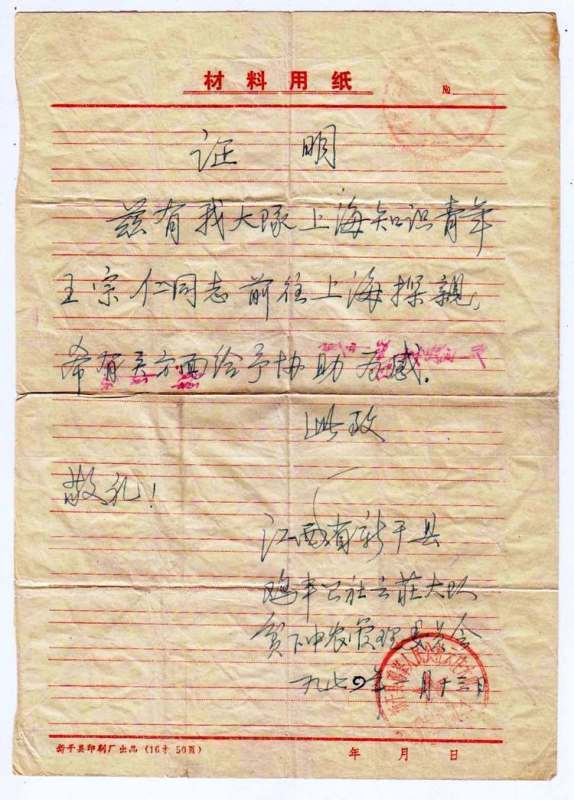 材料用纸
№
证 明
兹有我大队上海知识青年
王宗仁同志前往上海探親,
希有关方面给予协助为感.
此致
敬礼!
江西省新干县
鸡丰公社云莊大队
贫下中农管理委员会
一九七〇年 月十三日
新干县印刷厂出品(16寸 50页)
年 月 日